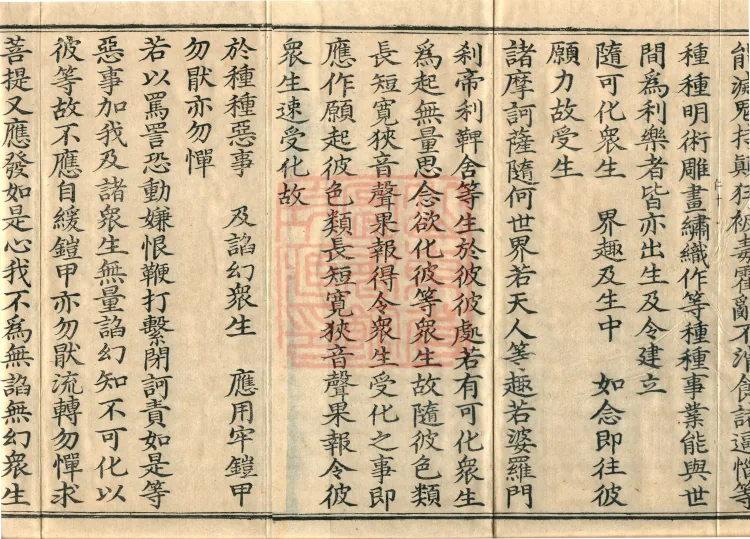 能滅鬼持顛狂被毒霍亂不消食諸逼惱等
種種明術雕畫繡織作等種種事業能與世
間為利樂者皆亦出生及令建立
隨可化衆生　界趣及生中　如念即往彼
願力故受生
諸摩訶薩隨何世界若天人等趣若婆羅門
剎帝利鞞舍等生於彼彼處若有可化衆生
為起無量思念欲化彼等衆生故隨彼色類
長短寬狹音聲果報得令衆生受化之事即
應作願起彼色類長短寬狹音聲果報令彼
衆生速受化故
於種種惡事　及諂幻衆生　應用牢鎧甲
勿猒亦勿憚
若以罵詈恐動嫌恨鞭打繫閉訶責如是等
惡事加我及諸衆生無量諂幻知不可化以
彼等故不應自緩鎧甲亦勿猒流轉勿憚求
菩提又應發如是心我不為無諂無幻衆生